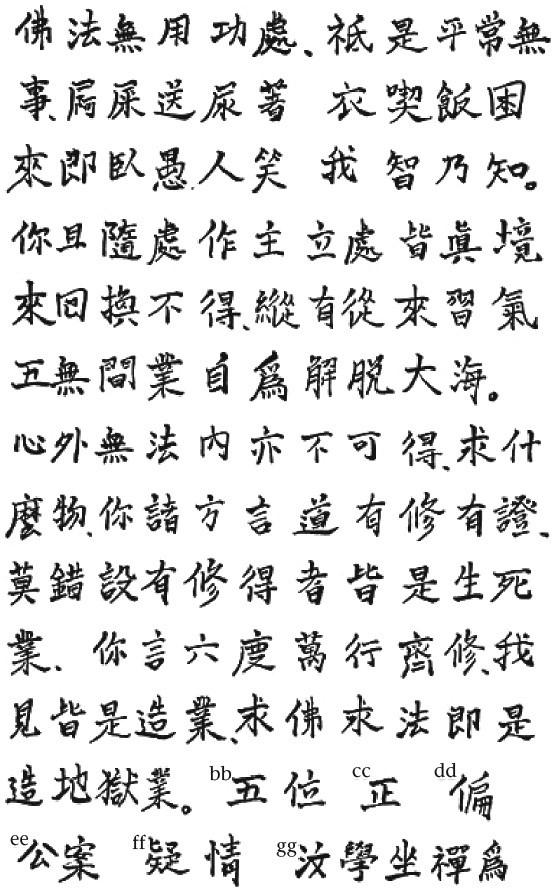 佛法無用功處、祗是平常無
事、屙屎送尿著衣喫飯困
來即臥、愚人笑我智乃知。
你且隨處作主立處皆眞境
來回換不得、縱有從來習氣
五無間業自爲解脱大海。
心外無法內亦不可得、求什
麼物、你諸方言道有修有證、
莫錯設有修得者皆是生死
業、你言六度萬行齊修、我
見皆是造業、求佛求法即是
造地獄業。 bb五位 cc正 dd偏
ee公案 ff疑情 gg汝學坐禪爲